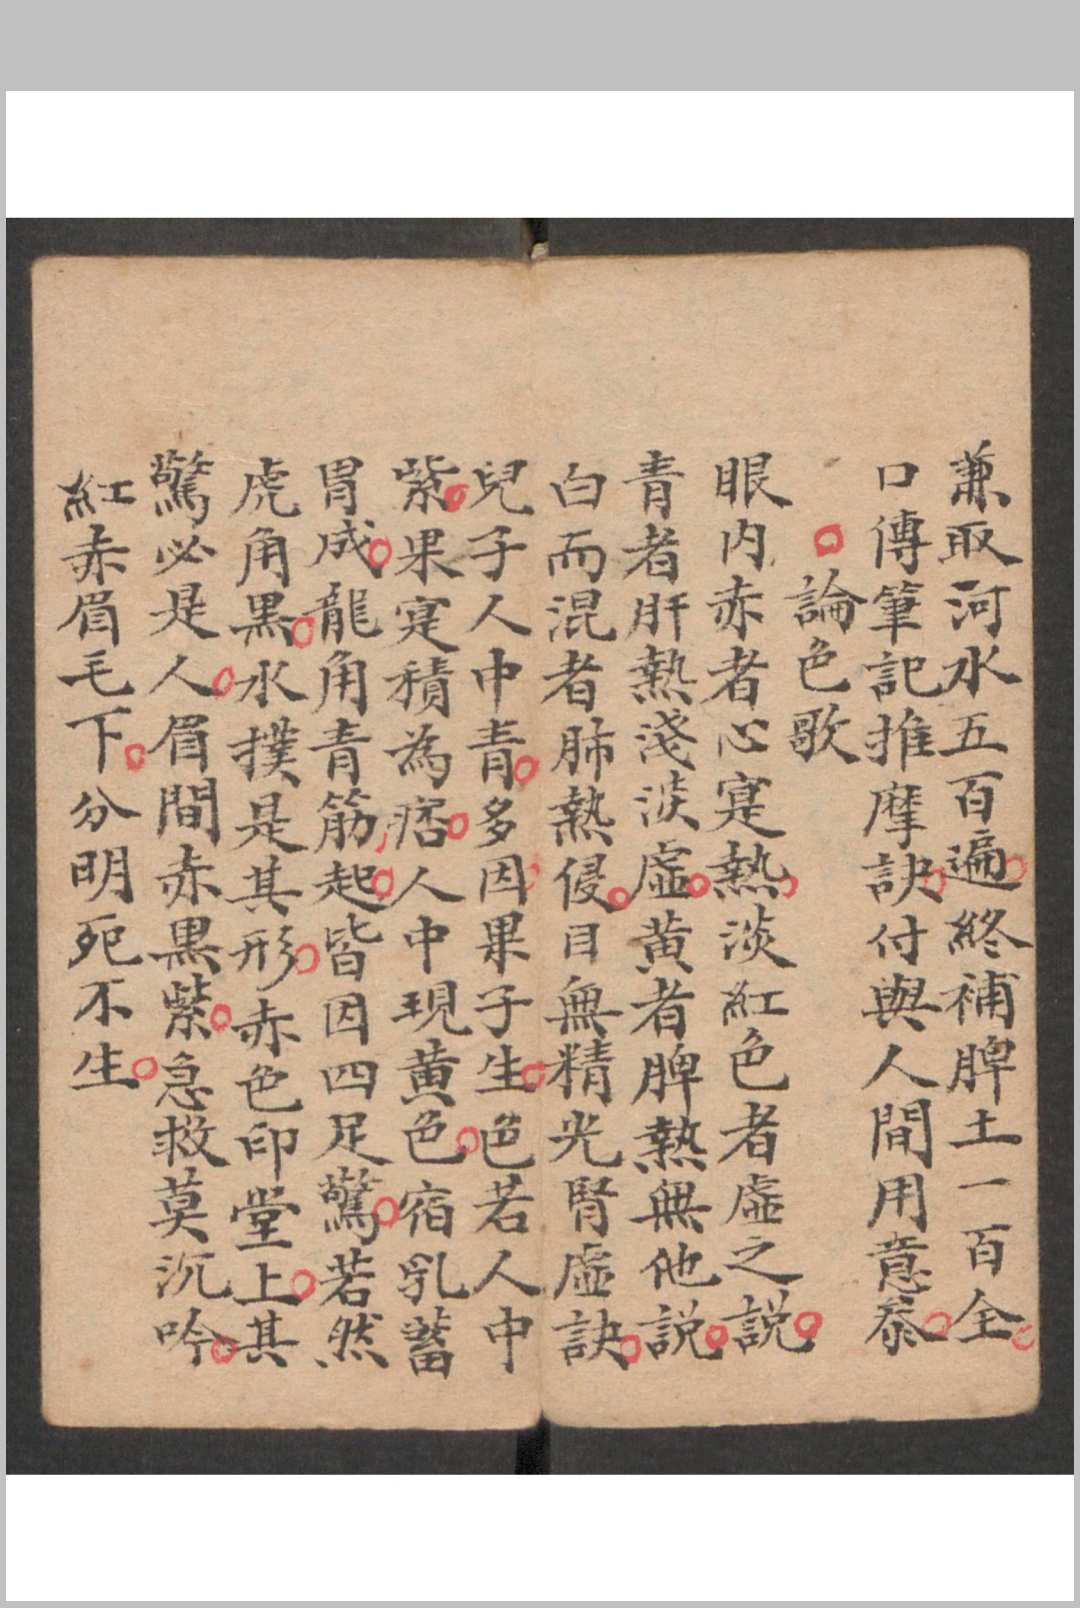 兼取河水五百遍終補脾土一百全
口傳筆記推摩訣付與人間用意叅
論色歌
眼内赤者心寔熱淡紅色者虛之説
青者肝熱淺淡虛黄者脾熱無他説
白而混者肺熱侵目無精光腎虛訣
兒子人中青多因果子生色若人中
紫果寔積為痞人中現黄色宿乳蓄
胃成龍角青筋起皆因四足驚若然
虎角黑水撲是其形赤色印堂上其
驚必是人眉間赤黒紫急救莫沉吟
紅赤眉毛下分明死不生